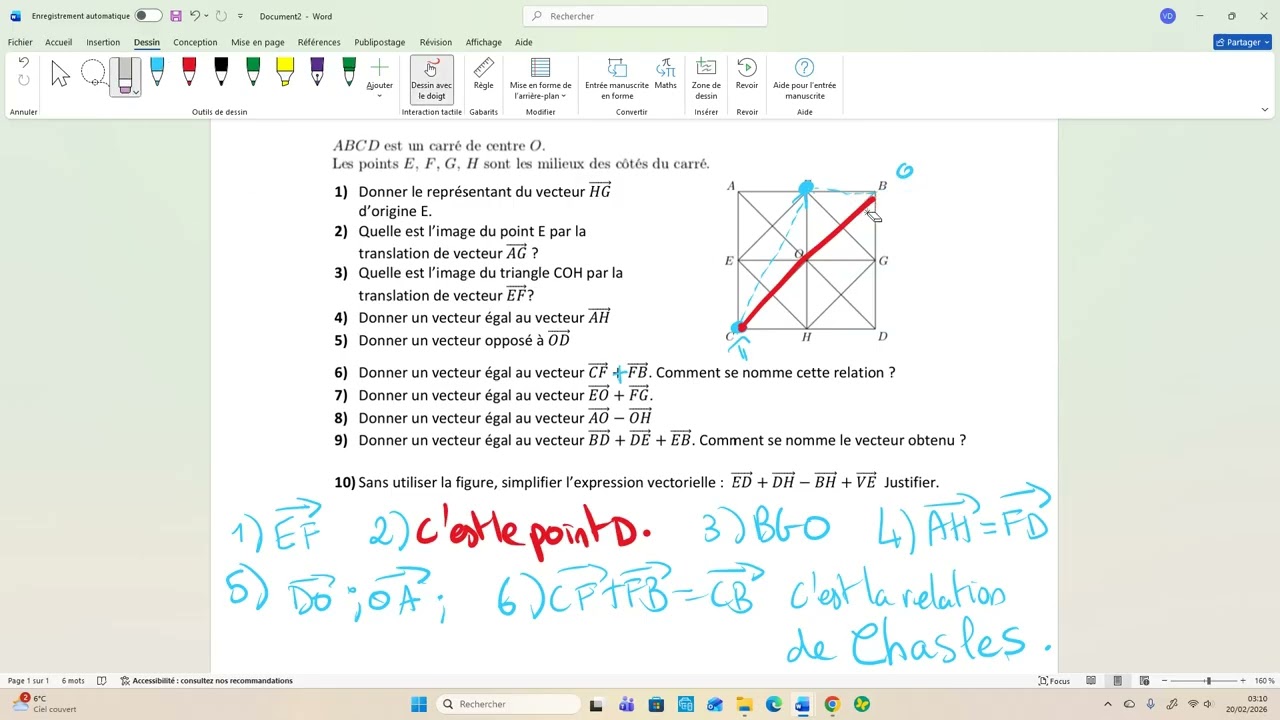 Enregistrement automatique
Document2 - Word
Rechercher
VD
Fichier Accueil Insertion Dessin Conception Mise en page Références Publipostage Révision Affichage Aide
Partager
Ajouter
Dessin avec le doigt
Règle
Mise en forme de l'arrière-plan
Entrée manuscrite en forme
Maths
Zone de dessin
Revoir
Aide pour l'entrée manuscrite
Annuler Outils de dessin Interaction tactile Gabarits Modifier Convertir Insérer Revoir Aide
ABCD est un carré de centre O.
Les points E, F, G, H sont les milieux des côtés du carré.
1) Donner le représentant du vecteur HG
d'origine E.
2) Quelle est l'image du point E par la
translation de vecteur AG ?
3) Quelle est l'image du triangle COH par la
translation de vecteur EF?
4) Donner un vecteur égal au vecteur AH
5) Donner un vecteur opposé à OD
A B
E O G
C H D
6) Donner un vecteur égal au vecteur CF + FB. Comment se nomme cette relation ?
7) Donner un vecteur égal au vecteur EO + FG.
8) Donner un vecteur égal au vecteur AO − OH
9) Donner un vecteur égal au vecteur BD + DE + EB. Comment se nomme le vecteur obtenu ?
10) Sans utiliser la figure, simplifier l'expression vectorielle : ED + DH − BH + VE Justifier.
1) EF 2) c'est le point D. 3) BGO 4) AH = FD
5) DO ; OA ; 6) CF + FB = CB c'est la relation
de Chasles.
Page 1 sur 1 6 mots Accessibilité : consultez nos recommandations Focus 160 %
2
6°C
Ciel couvert
Rechercher
03:10
20/02/2026